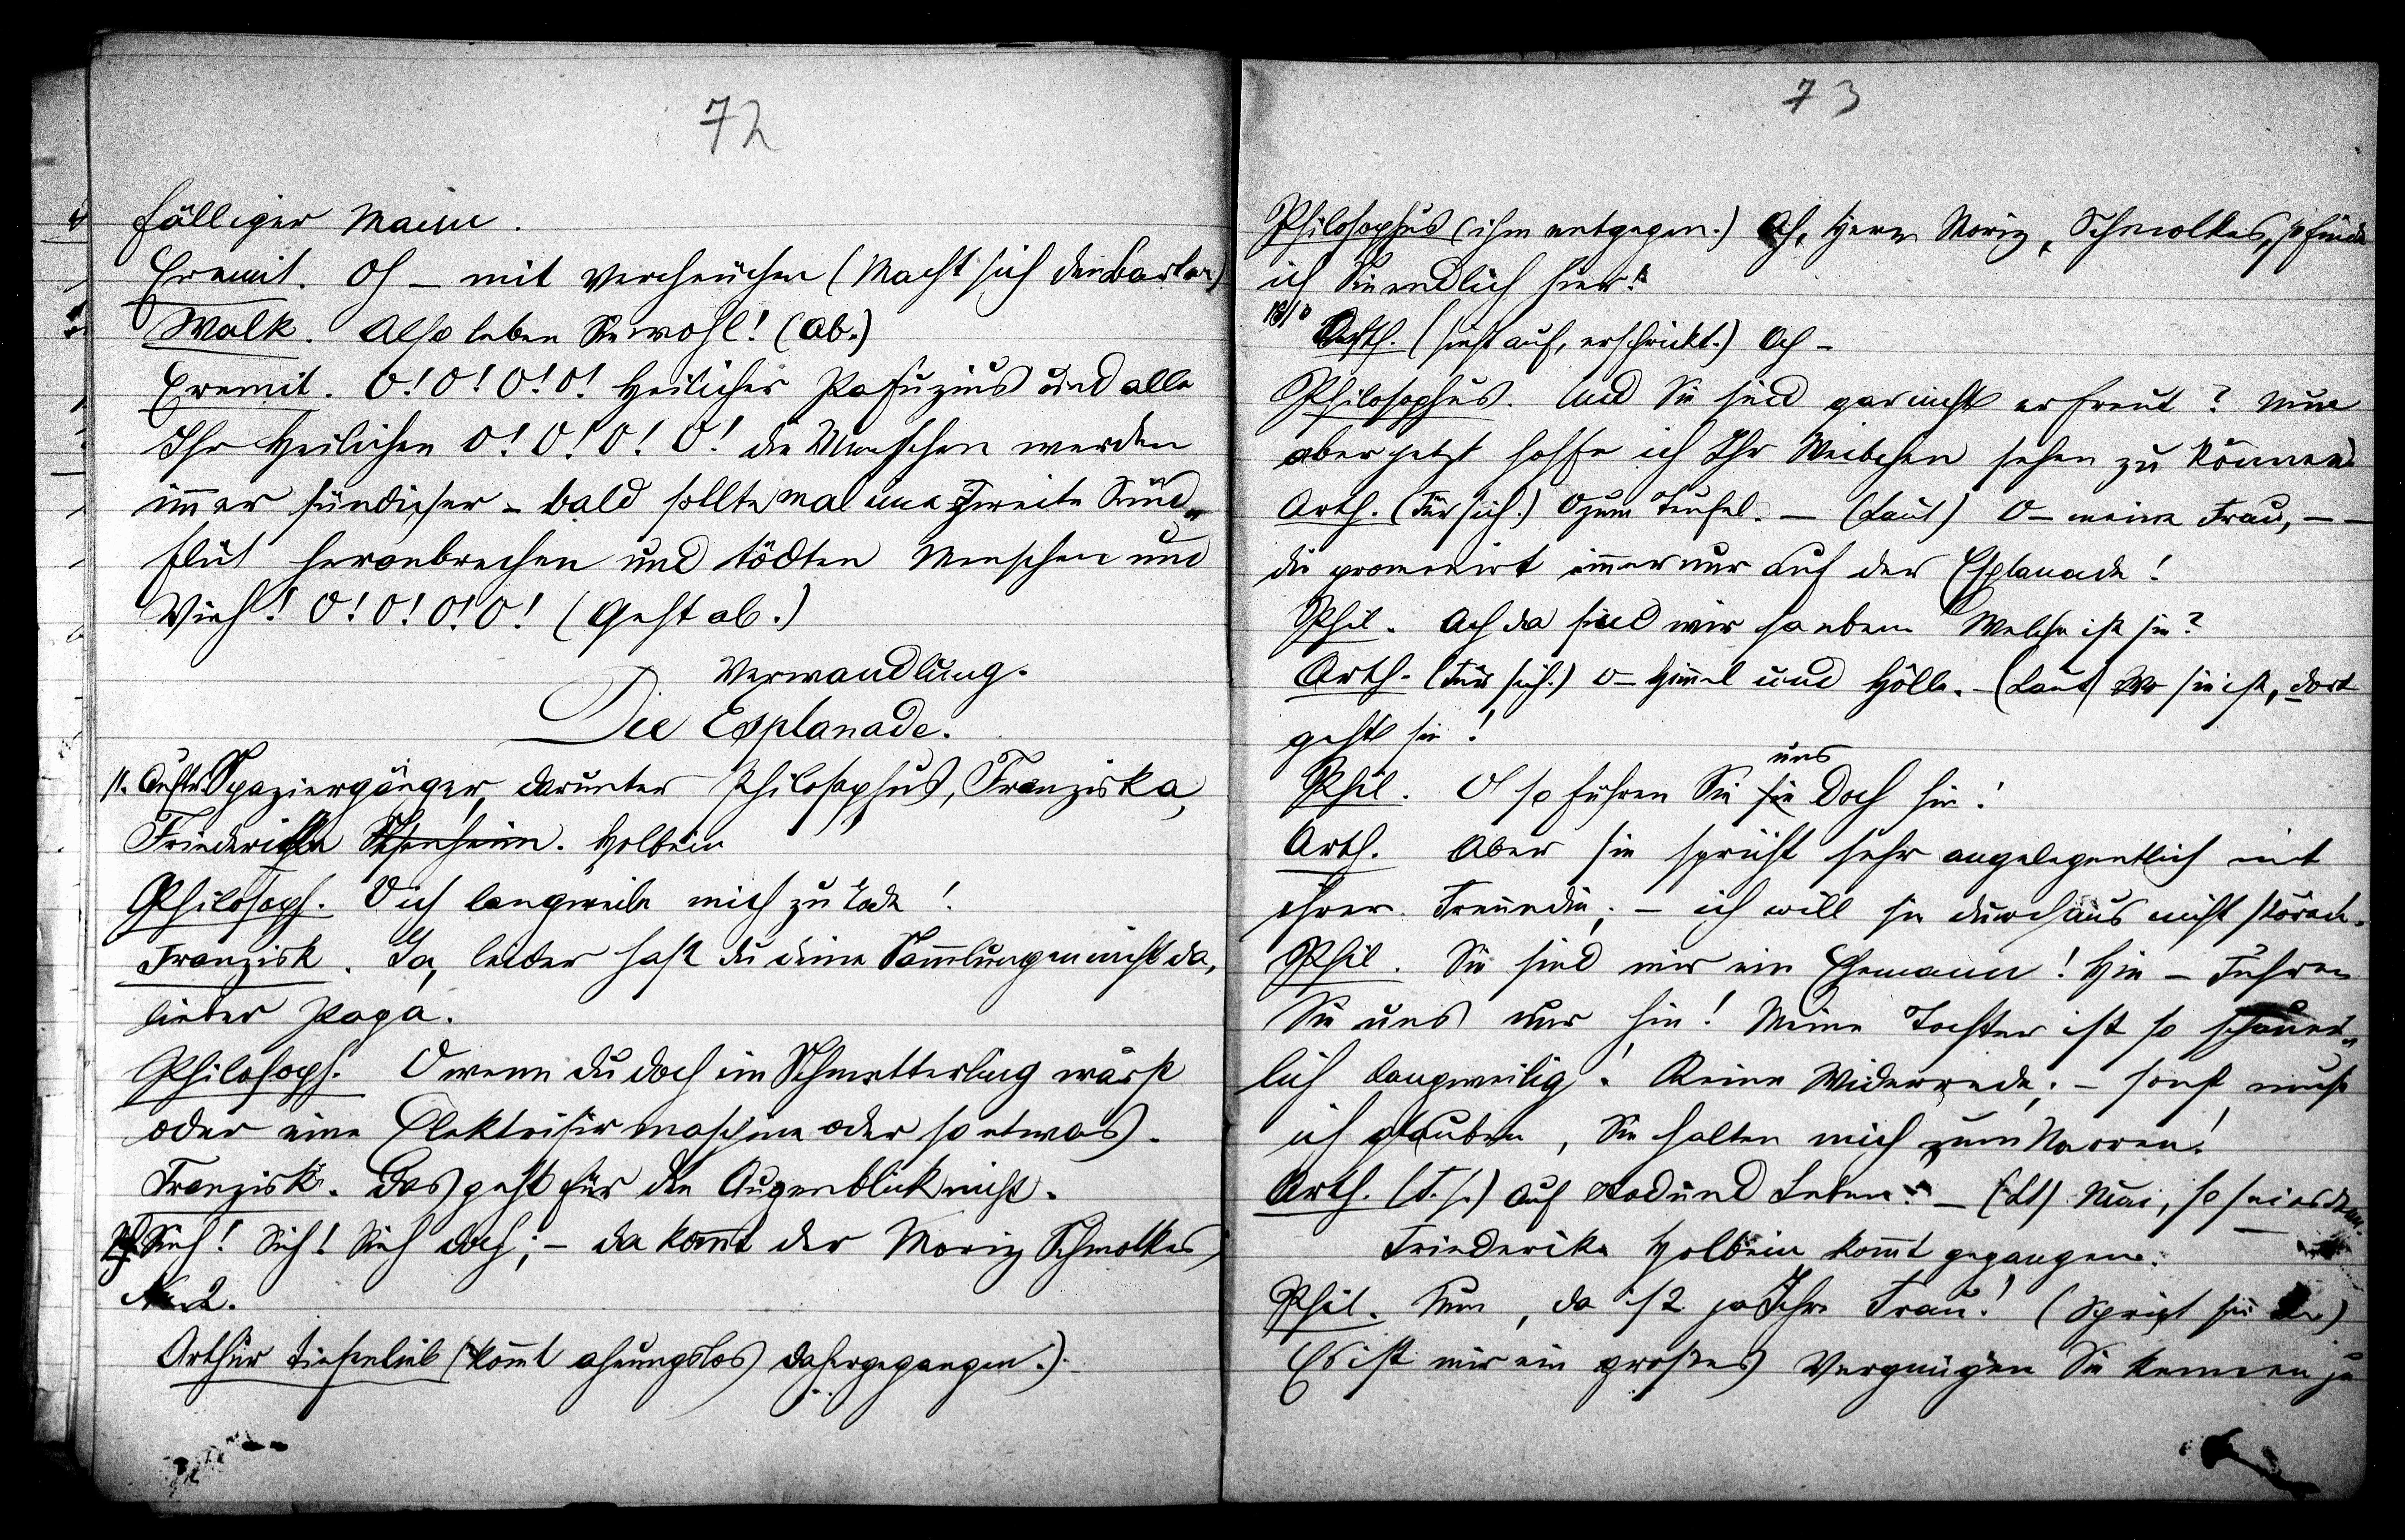 72
fälliger Mann.
Eremit. Oh – mit Vercheuchen (Macht sich den Bart an)
Walk. Also leben Sie wohl! (Ab.)
Eremit. O! O! O! O! Heilicher Pafuzius und alle
Ihr Heilichen O! O! O! O! die Menschen werden
im̄er sündicher – bald sollte mal eine zweite Sünd„
flut heranbrechen und tödten Menschen und
Vieh! O! O! O! O! (Geht ab.)
Verwandlung.
Die Esplanade.
11. Auftr. Spaziergänger, darunter Philosophus, Franziska,
Friederike Holbein
Philosoph. O ich langweile mich zu Tode!
Franzisk. Ja, leider hast du deine Sam̄lungen nicht da,
lieber Papa.
Philosoph. O wenn du doch ein Schmetterling wärst
oder eine Elektrisirmaschine oder so etwas.
Franzisk. Das geht für den Augenblick nicht.
Sieh! Sieh! Sieh doch; – da kom̄t der Moriz Schmolkes
No 2.
Arthur Tiefenlieb (kom̄t ahnungslos dahergegangen.)
73
Philosophus (ihm entgegen.) Ah, Herrn Moriz Schmolkes, so finde
ich Sie endlich hier!
Arth. (sieht auf, erschrickt.) Ach –
Philosophus. Und Sie sind gar nicht erfreut? Nun
aber jetzt hoffe ich Ihr Weibchen sehen zu können
Arth. (Für sich.) O zum Teufel. – (Laut) O – meine Frau, – –
die promenirt im̄er nur auf der Esplanade!
Phil. Ach da sind wir ja eben Welche ist sie?
Arth. (Für sich.) O – Him̄el und Hölle. – (Laut) Wo sie ist, dort
geht sie!
uns
Phil. O so führen Sie sie doch hin!
Arth. Aber sie spricht sehr angelegentlich mit
ihrer Freundin; – ich will sie durchaus nicht stören.
Phil. Sie sind mir ein Ehemann! Hin – Führen
Sie uns nur hin! Meine Tochter ist so schauer„
lich langweilig! Keine Widerrede; – sonst muß
ich glauben, Sie halten mich zum Narren!
Arth. (F. s.) Auf Tod und Leben! – (Lt) Nun, so sei es denn.
Friederike Holbein kom̄t gegangen.
Phil. Nun, da ist ja Ihre Frau! (Spricht sie an)
Es ist mir ein großes Vergnügen Sie kennen zu